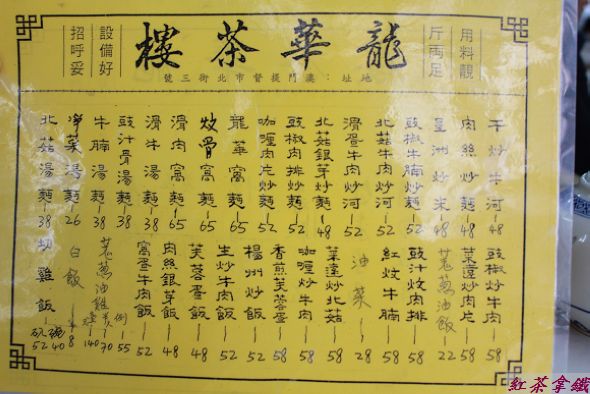 用料靚
斤両足
龍華茶樓
設備好
招呼妥
地址：澳門提督市北街三號
干炒牛河－48
肉絲炒麵－48
星洲炒米－48
豉椒牛腩炒麵－52
北菇牛肉炒河－52
滑蛋牛肉炒河－52
北菇銀芽炒麵－48
豉椒肉排炒麵－52
咖喱肉片炒麵－52
龍華窩麵－65
炆骨窩麵－65
滑肉窩麵－65
滑牛湯麵－38
豉汁骨湯麵－38
牛腩湯麵－38
淨菜湯麵－26
北菇湯麵－38
豉椒炒牛肉－58
菜遠炒肉片－58
薑葱油飯－22
豉汁炆肉排－58
紅炆牛腩－58
油菜－28
菜遠炒北菇－58
咖喱炒牛肉－58
香煎芙蓉蛋－58
楊州炒飯－52
生炒牛肉飯－52
芙蓉蛋飯－48
肉絲銀芽飯－48
窩蛋牛肉飯－52
薑葱油雞 例－55 70 140
白飯 8
切雞飯 碗40 52
紅茶拿鐵